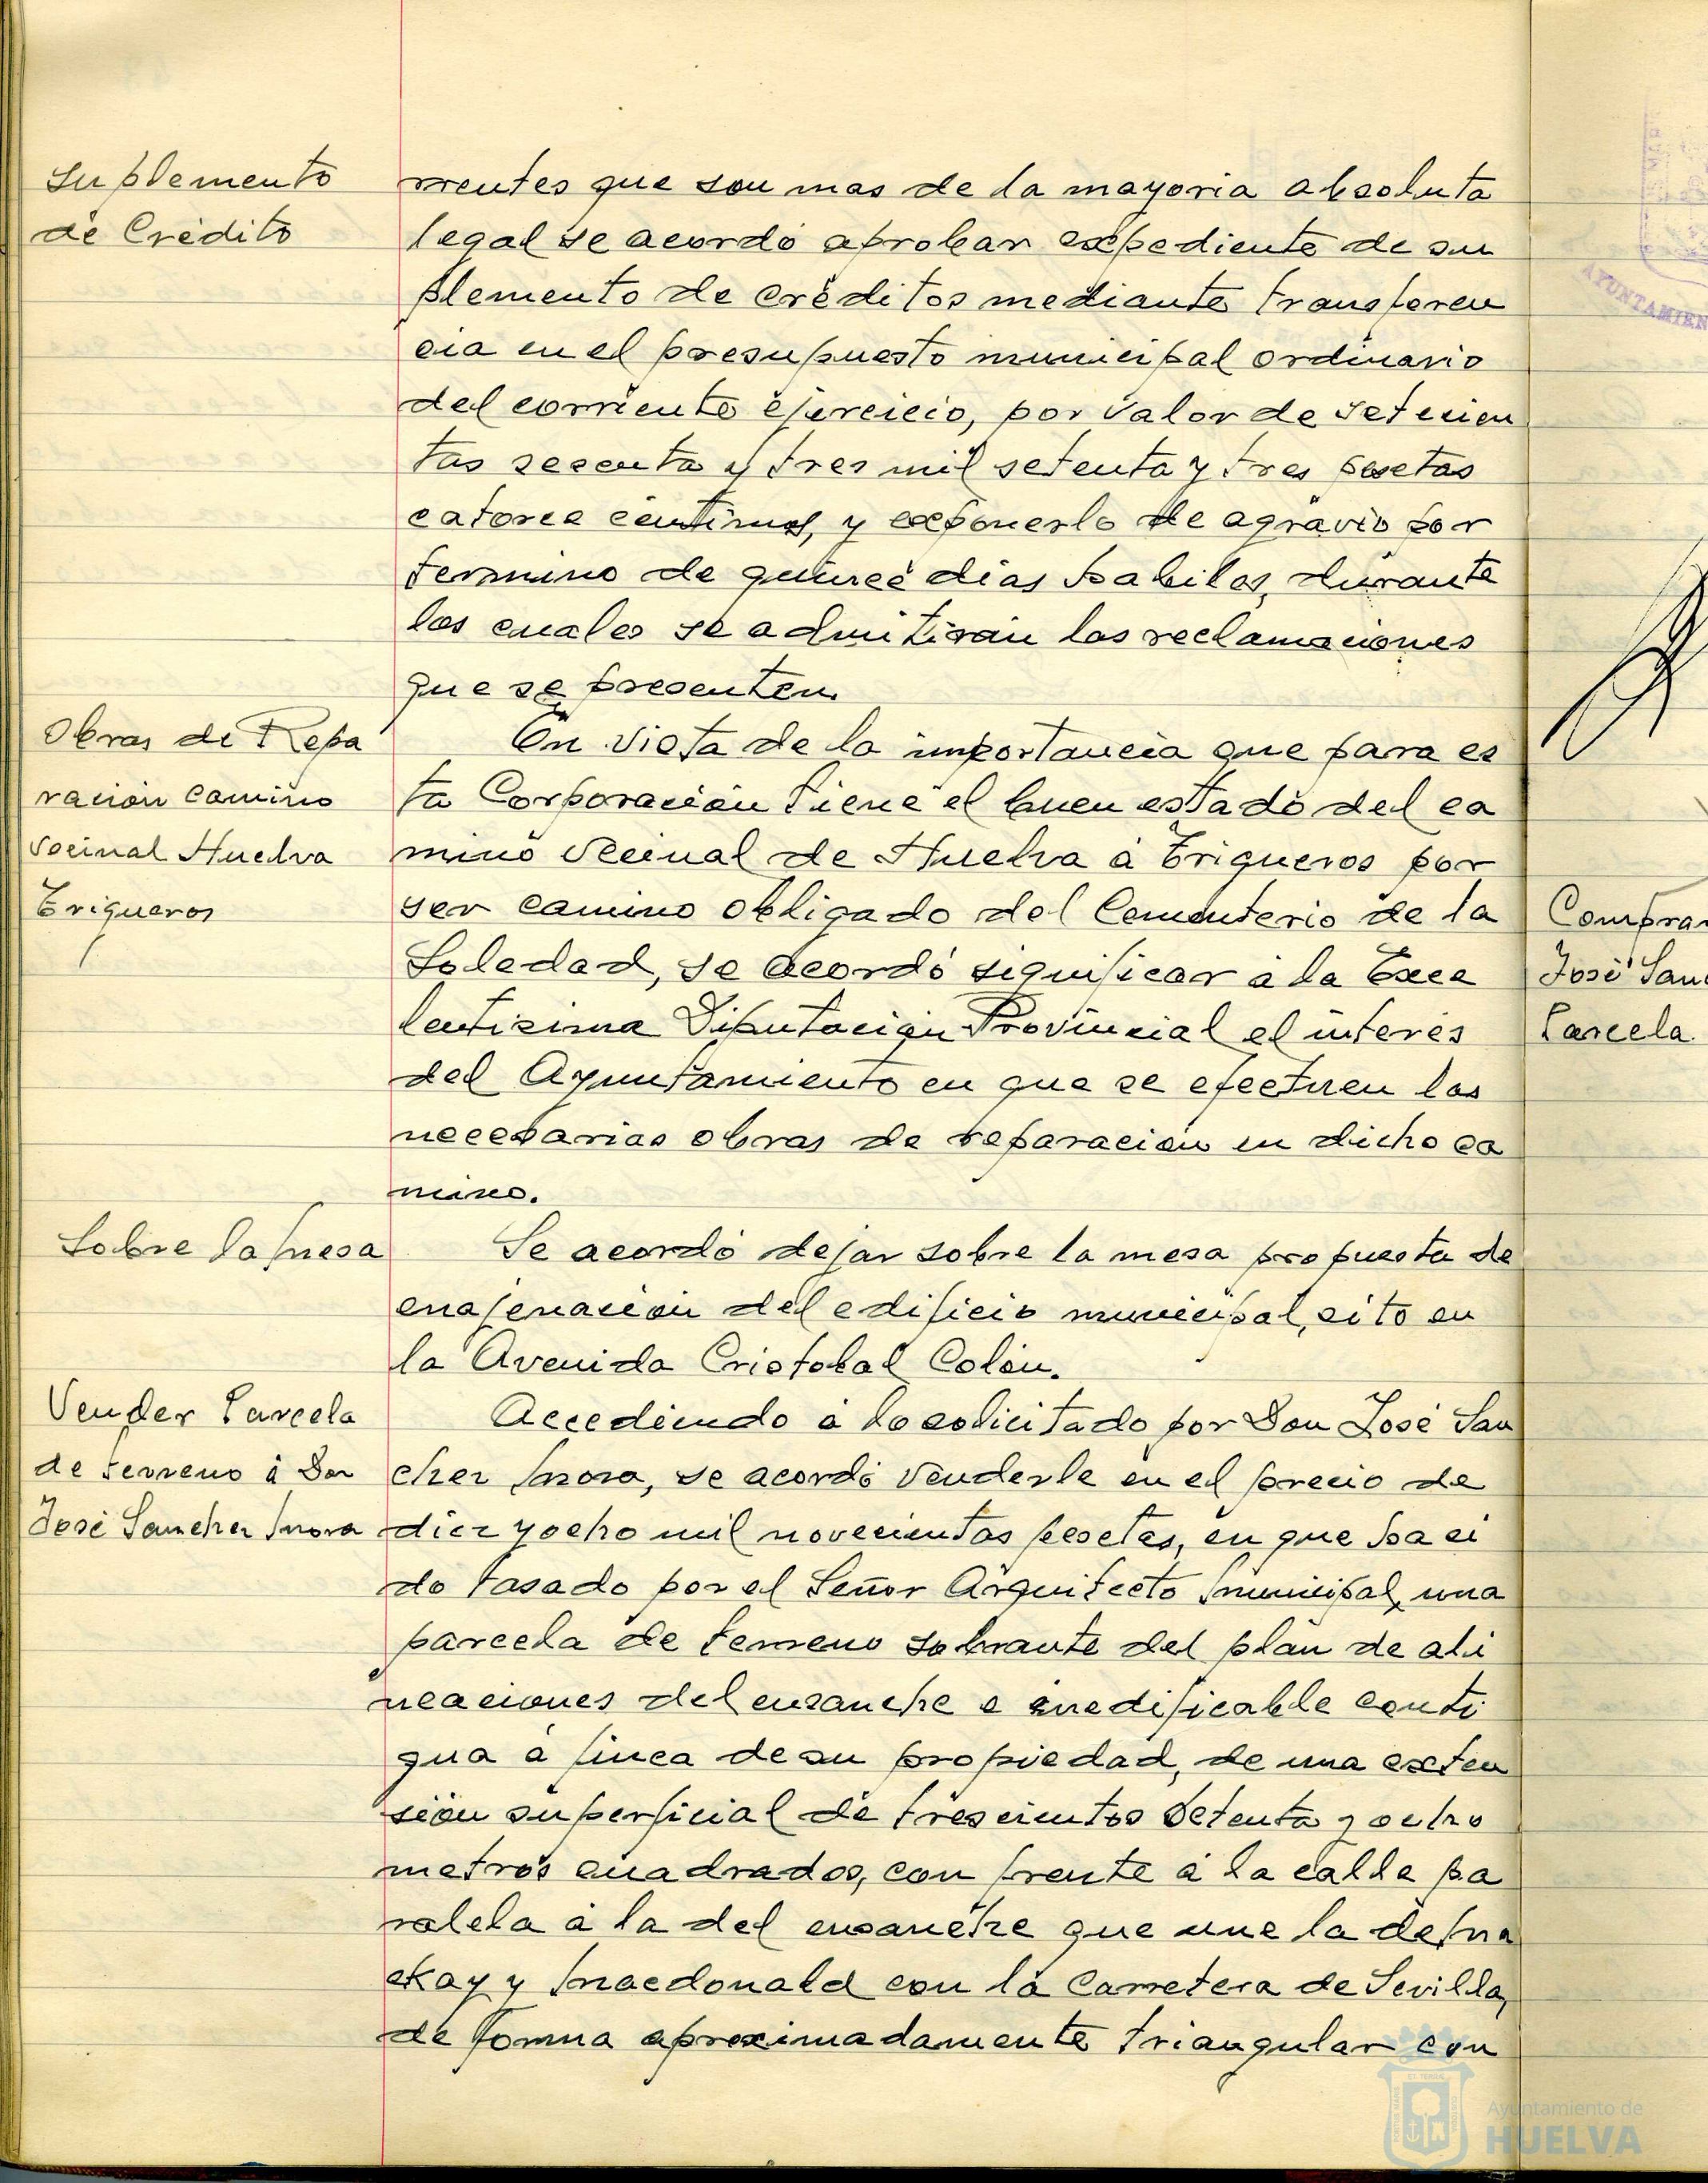 Suplemento
de Crédito
rrentes que son mas de la mayoria absoluta
legal se acordó aprobar expediente de su
plemento de créditos mediante transferen
cia en el presupuesto municipal ordinario
del corriente ejercicio, por valor de setecien
tas sesenta y tres mil setenta y tres pesetas
catorce centimos, y exponerlo de agravio por
termino de quince dias habiles, durante
los cuales se admitiran las reclamaciones
que se presenten.
Obras de Repa
ración camino
vecinal Huelva
Trigueros
En vista de la importancia que para es
ta Corporación tiene el buen estado del ca
mino vecinal de Huelva á Trigueros por
ser camino obligado del Cementerio de la
Soledad, se acordó significar á la Exce
lentisima Diputación Provincial el interés
del Ayuntamiento en que se efectuen las
necesarias obras de reparación en dicho ca
mino.
Sobre la mesa
Se acordó dejar sobre la mesa propuesta de
enajenación del edificio municipal, sito en
la Avenida Cristobal Colón.
Vender Parcela
de terreno á Don
José Sanchez Mora
Accediendo á lo solicitado por Don José San
chez Mora, se acordó venderle en el precio de
diez y ocho mil novecientas pesetas, en que ha si
do tasado por el Señor Arquitecto Municipal, una
parcela de terreno sobrante del plan de ali
neaciones del ensanche e inedificable conti
gua á finca de su propiedad, de una exten
sión superficial de trescientos setenta y ocho
metros cuadrados, con frente á la calle pa
ralela á la del ensanche que une la de Ma
ckay y Macdonald con la Carretera de Sevilla,
de forma aproximadamente triangular con
AYUNTAMIEN
Comprar
José San
Parcela
Ayuntamiento de
HUELVA